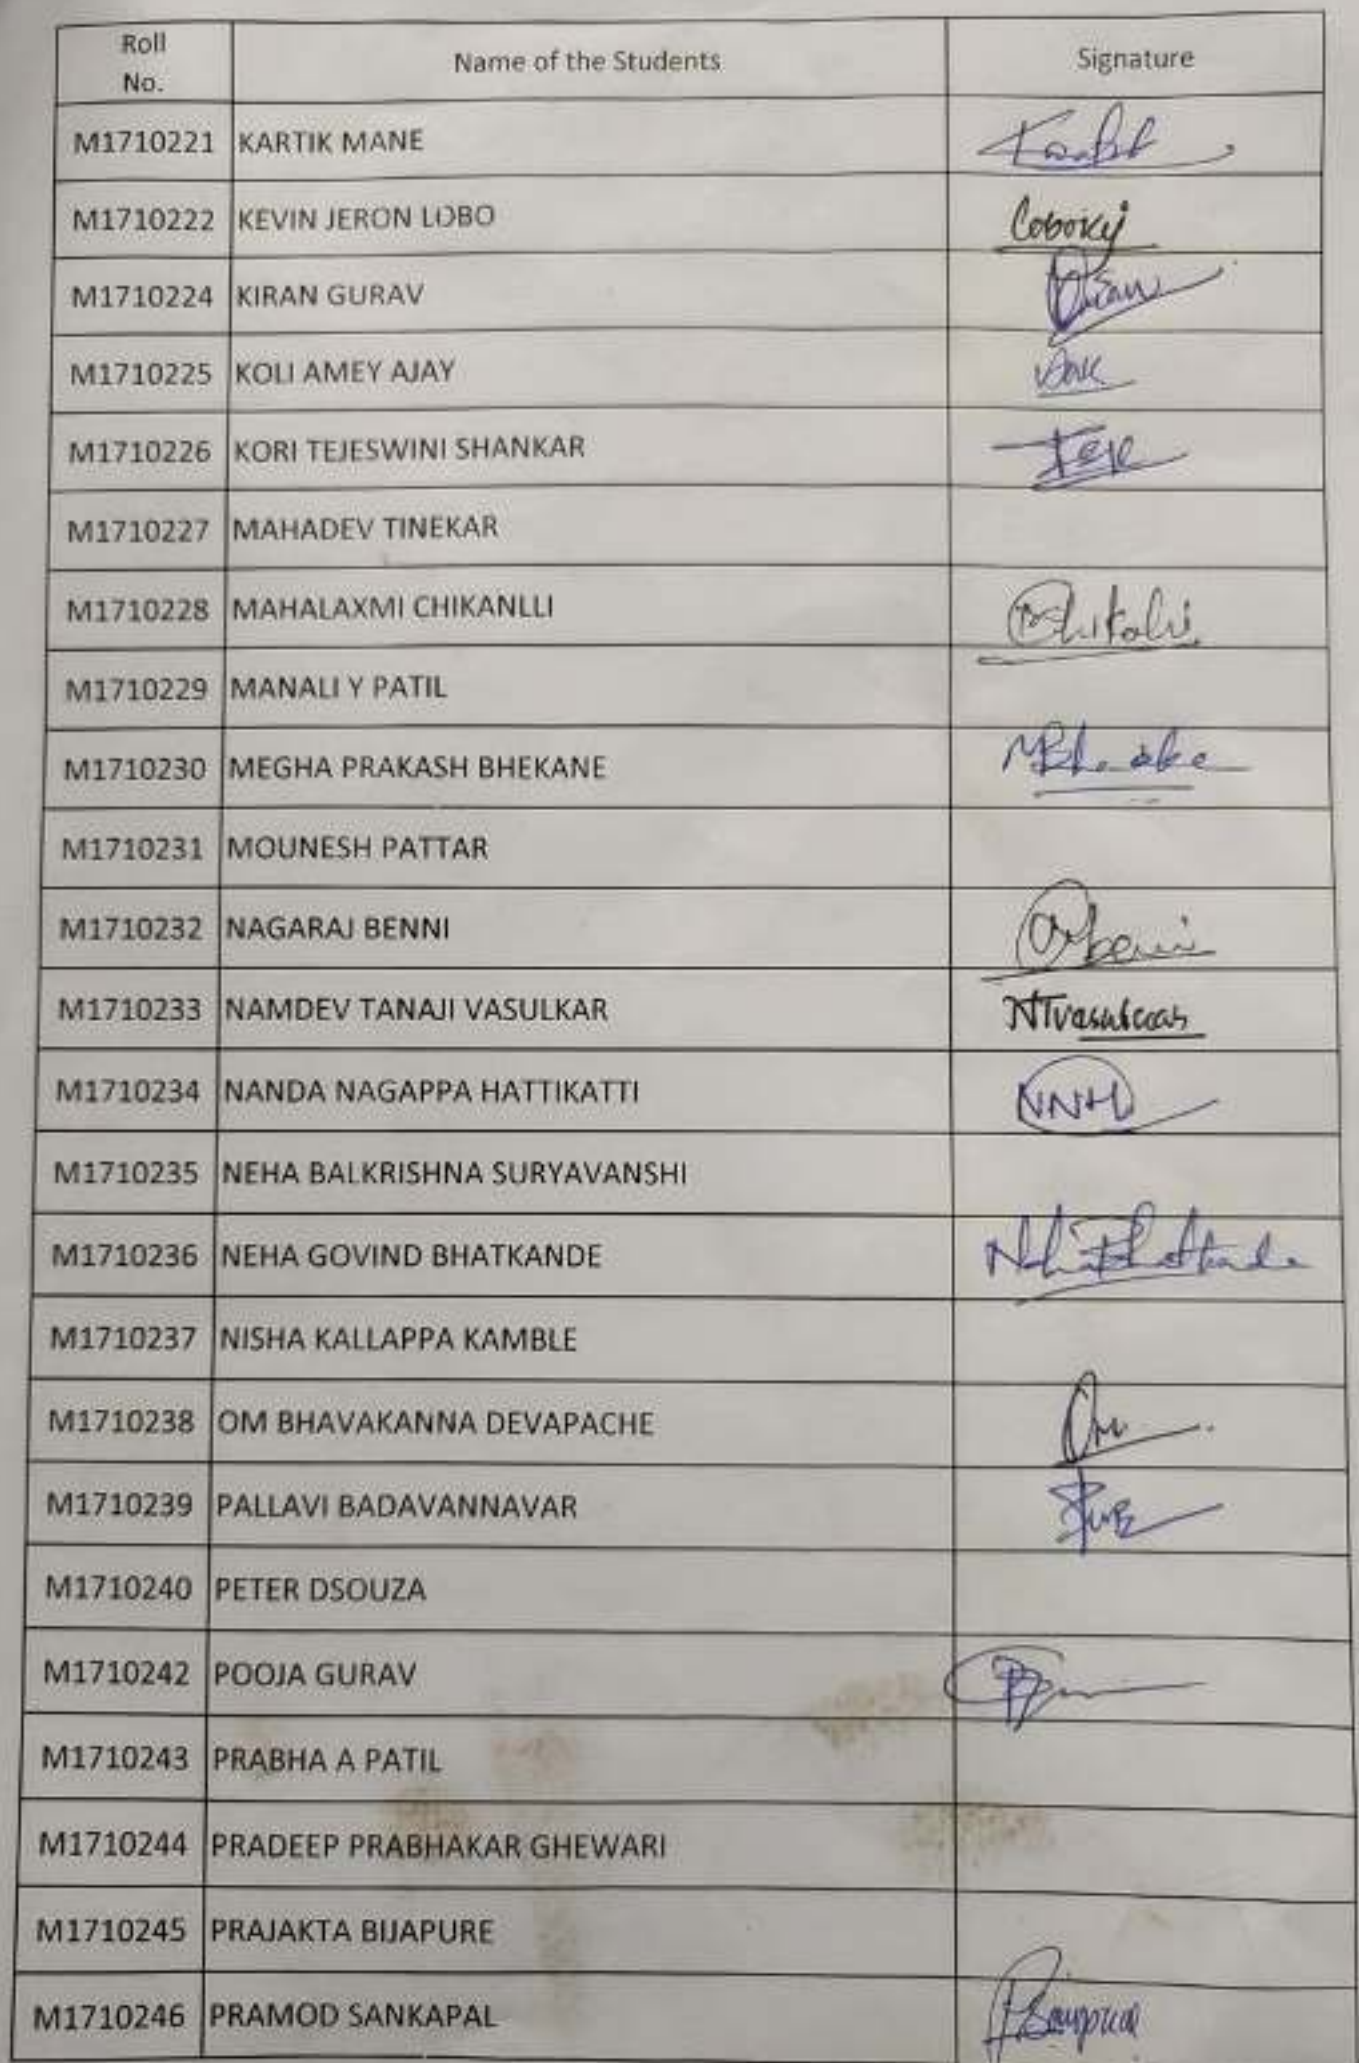 Roll No.
Name of the Students
Signature
M1710221 KARTIK MANE
M1710222 KEVIN JERON LOBO
M1710224 KIRAN GURAV
M1710225 KOLI AMEY AJAY
M1710226 KORI TEJESWINI SHANKAR
M1710227 MAHADEV TINEKAR
M1710228 MAHALAXMI CHIKANLLI
M1710229 MANALI Y PATIL
M1710230 MEGHA PRAKASH BHEKANE
M1710231 MOUNESH PATTAR
M1710232 NAGARAJ BENNI
M1710233 NAMDEV TANAJI VASULKAR
M1710234 NANDA NAGAPPA HATTIKATTI NNH
M1710235 NEHA BALKRISHNA SURYAVANSHI
M1710236 NEHA GOVIND BHATKANDE
M1710237 NISHA KALLAPPA KAMBLE
M1710238 OM BHAVAKANNA DEVAPACHE Om
M1710239 PALLAVI BADAVANNAVAR
M1710240 PETER DSOUZA
M1710242 POOJA GURAV
M1710243 PRABHA A PATIL
M1710244 PRADEEP PRABHAKAR GHEWARI
M1710245 PRAJAKTA BIJAPURE
M1710246 PRAMOD SANKAPAL